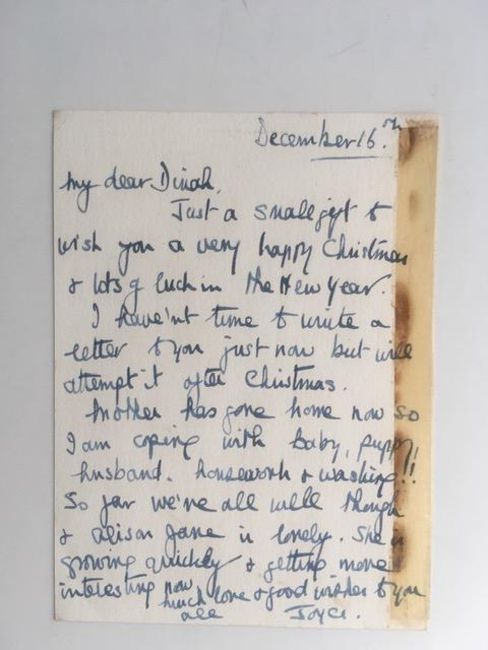 December 16.th
My dear Dinah,
Just a small gift to
wish you a very happy Christmas
& lots of luck in the New Year.
I have'nt time to write a
letter to you just now but will
attempt it after Christmas.
Mother has gone home now so
I am coping with baby, puppy,
husband. housework & washing!!
So far we're all well though
& Alison Jane is lovely. She is
growing quickly & getting more
interesting now
much love & good wishes to you
all Joyce.